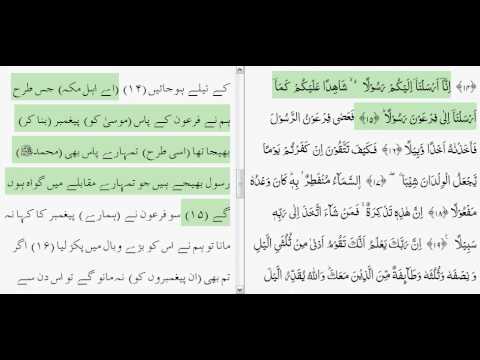 ﴿۱۴﴾ اِنَّاۤ اَرْسَلْنَاۤ اِلَیْکُمْ رَسُوْلًا ۙ۬ شَاهِدًا عَلَیْکُمْ کَمَاۤ
اَرْسَلْنَاۤ اِلٰی فِرْعَوْنَ رَسُوْلًا ﴿۱۵﴾ فَعَصٰی فِرْعَوْنُ الرَّسُوْلَ
فَاَخَذْنٰهُ اَخْذًا وَّبِیْلًا ﴿۱۶﴾ فَکَیْفَ تَتَّقُوْنَ اِنْ کَفَرْتُمْ یَوْمًا
یَّجْعَلُ الْوِلْدَانَ شِیْبَا ﴿۱۷﴾ السَّمَآءُ مُنْفَطِرٌۢ بِهٖ ؕ کَانَ وَعْدُهٗ
مَفْعُوْلًا ﴿۱۸﴾ اِنَّ هٰذِهٖ تَذْکِرَةٌ ۚ فَمَنْ شَآءَ اتَّخَذَ اِلٰی رَبِّهٖ
سَبِیْلًا ﴿۱۹﴾ اِنَّ رَبَّکَ یَعْلَمُ اَنَّکَ تَقُوْمُ اَدْنٰی مِنْ ثُلُثَیِ الَّیْلِ
وَ نِصْفَهٗ وَ ثُلُثَهٗ وَ طَآئِفَةٌ مِّنَ الَّذِیْنَ مَعَکَ ؕ وَ اللّٰهُ یُقَدِّرُ الَّیْلَ
کے ٹیلے ہو جائیں (۱۴) (اے اہل مکہ) جس طرح
ہم نے فرعون کے پاس (موسیٰ کو) پیغمبر (بنا کر)
بھیجا تھا (اسی طرح) تمہارے پاس بھی (محمدﷺ)
رسول بھیجے ہیں جو تمہارے مقابلے میں گواہ ہوں
گے (۱۵) سو فرعون نے (ہمارے) پیغمبر کا کہا نہ
مانا تو ہم نے اس کو بڑے وبال میں پکڑ لیا (۱۶) اگر
تم بھی (ان پیغمبروں کو) نہ مانو گے تو اس دن سے